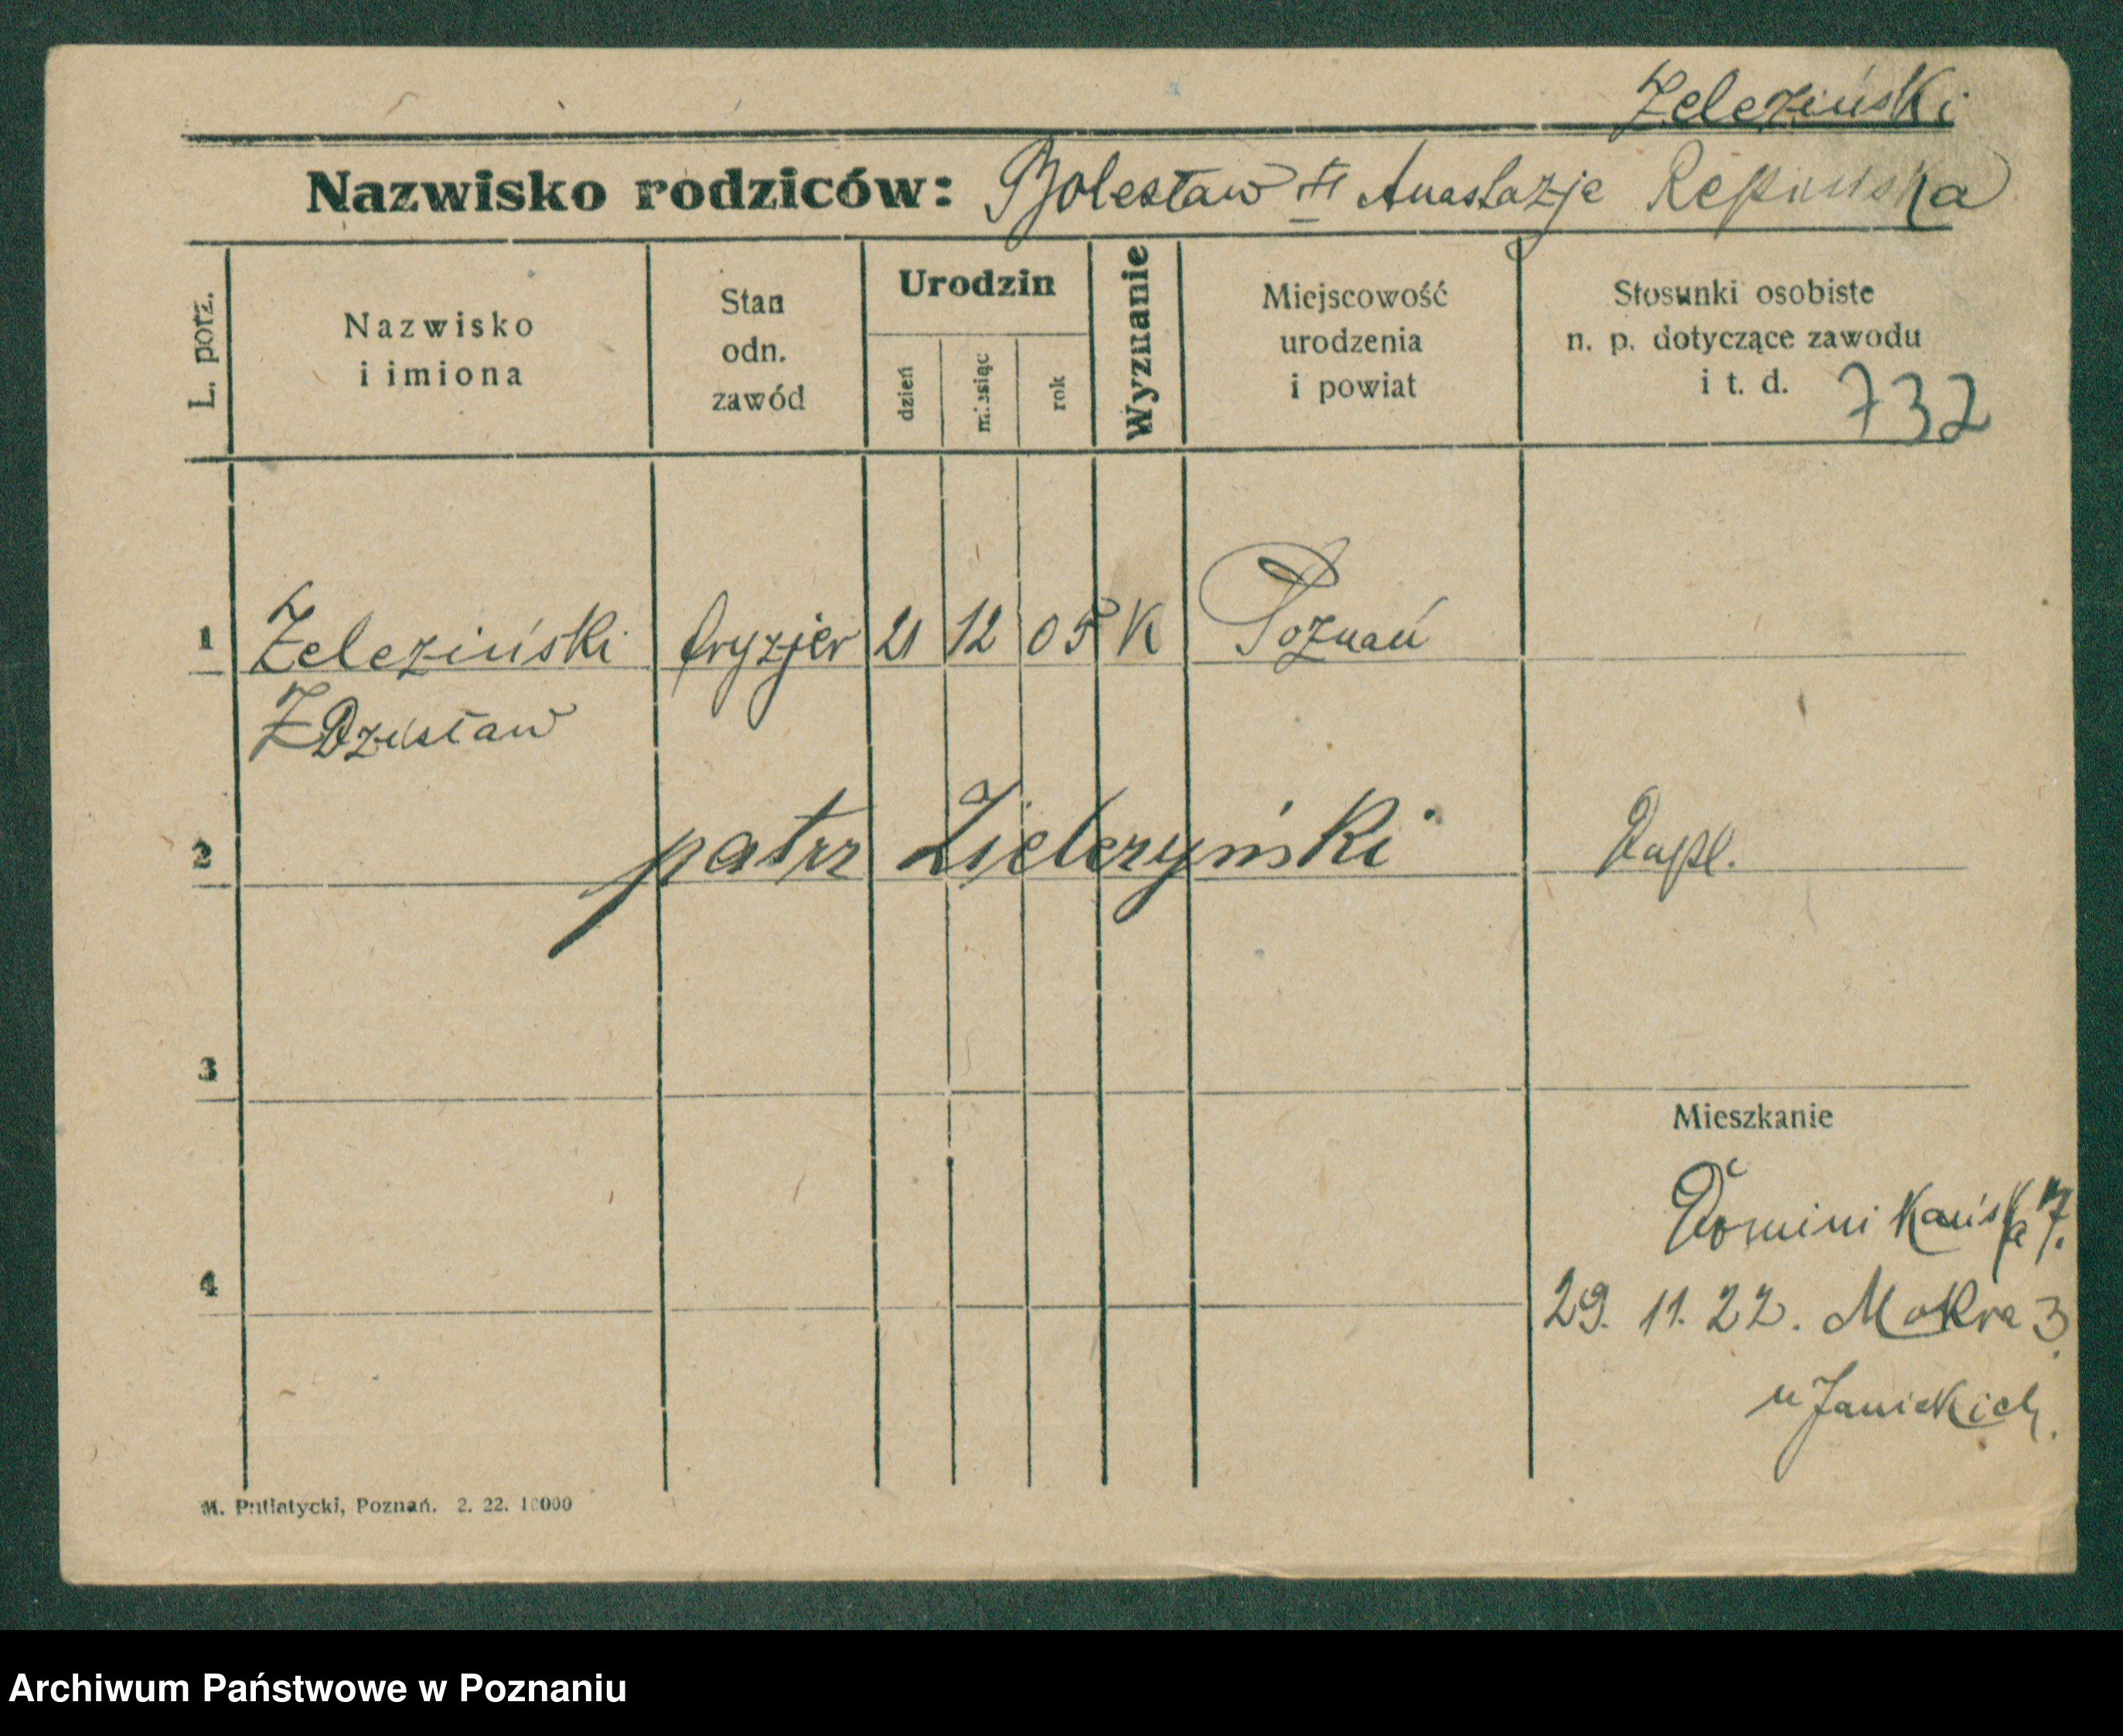 Żeleziński
Nazwisko rodziców: Bolesław i Anastazje Repińska
L. porz.
Nazwisko
i imiona
Stan
odn.
zawód
Urodzin
dzień
miesiąc
rok
Wyznanie
Miejscowość
urodzenia
i powiat
Stosunki osobiste
n. p. dotyczące zawodu
i t. d. 732
1 Żeleziński fryzjer 21 12 05 K Poznań
Zdzisław
2 patrz Zielezyński Dupl.
3
Mieszkanie
Dominikańska 7.
4
29. 11. 22. Mokra 3.
u Janickich.
M. Putiatycki, Poznań. 2. 22. 10000
Archiwum Państwowe w Poznaniu